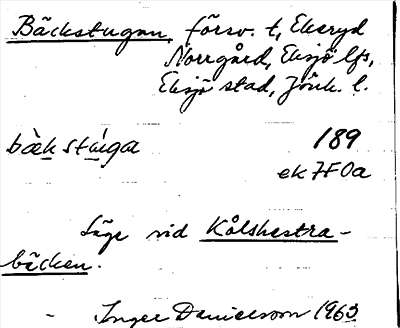 Bäckstugan, försv. t, Eksryd
Norrgård, Eksjö lfs,
Eksjö stad, Jönk. l.
bäkstúga 189
ek 7F0a
Läge vid Kålshestra-
bäcken.
- Inger Danielsson 1963